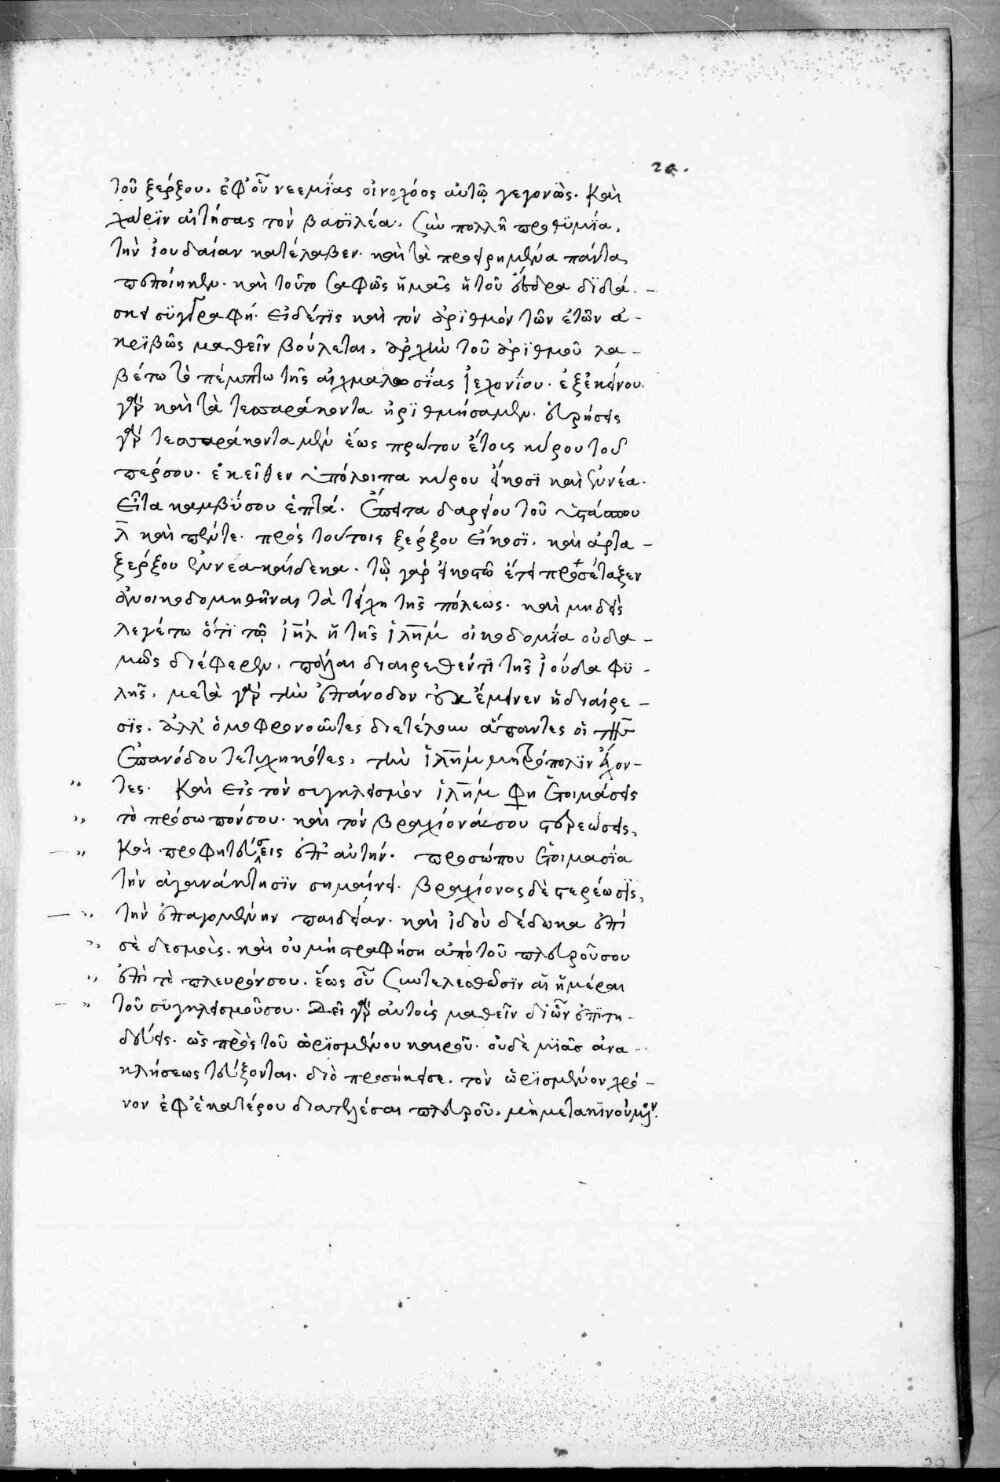 29.
τοῦ ξέρξου. ἐφ' οὗ νεεμίας οἰνοχόος αὐτῶ γεγονὼς. καὶ
χάριν αἰτήσας τὸν βασιλέα. σὺν πολλῆ προθυμία,
τὴν ἰουδαίαν κατέλαβεν. καὶ τὰ προειρημένα πάντα
πεποίηκεν. καὶ τοῦτο σαφῶς ἡμᾶς ἡ τοῦ ἔσδρα διδά-
σκει συγγραφή. εἰ δέ τις καὶ τὸν ἀριθμὸν τῶν ἐτῶν ἀ-
κριβῶς μαθεῖν βούλεται, ἀρχὴν τοῦ ἀριθμοῦ λα-
βέτω τὸ πέμπτω τῆς αἰχμαλωσίας ἰεχονίου. ἐξ ἐκείνου
γὰρ καὶ τὰ τεσσαράκοντα ἠριθμήσαμεν. εὑρήσεις
γὰρ τεσσαράκοντα μὲν ἕως πρώτου ἔτους κύρου τοῦ
πέρσου. ἐκεῖθεν ὑπόλοιπα κύρου εἴκοσι καὶ ἐννέα.
εἶτα καμβύσου ἑπτά. ἔπειτα δαρείου τοῦ ὑστάσπου
λ̅ καὶ πέντε. πρὸς τούτοις ξέρξου εἴκοσι. καὶ ἀρτα-
ξέρξου ἐννεακαίδεκα. τῶ γὰρ εἰκοστῶ ἔτει προσέταξεν
ἀνοικοδομηθῆναι τὰ τείχη τῆς πόλεως. καὶ μηδεὶς
λεγέτω ὅτι τῶ ι̅η̅λ ἢ τῆς ι̅λ̅η̅μ οἰκοδομία οὐδα-
μῶς διέφερεν. πάλαι διαιρεθέντι τῆς ἰούδα φυ-
λῆς. μετὰ γὰρ τὴν ἐπάνοδον οὐκ ἔμεινεν ἡ διαίρε-
σις. ἀλλ' ὁμοφρονοῦντες διετέλουν ἅπαντες οἱ τῆς
ἐπανόδου τετυχηκότες, τὴν ι̅λ̅η̅μ μητρόπολιν ἔχον-
τες. καὶ εἰς τὸν συγκλεισμὸν ι̅λ̅η̅μ φη ἑτοιμάσεις
τὸ πρόσωπόν σου. καὶ τὸν βραχίονά σου στερεώσεις,
καὶ προφητεύσεις ἐπ' αὐτήν. προσώπου ἑτοιμασία
τὴν ἀγανάκτησιν σημαίνει. βραχίονος δὲ στερέωσις,
τὴν ἐπαγομένην παιδείαν. καὶ ἰδοὺ δέδωκα ἐπὶ
σὲ δεσμοὺς. καὶ οὐ μὴ στραφήση ἀπὸ τοῦ πλευροῦ σου
ἐπὶ τὸ πλευρόν σου. ἕως οὗ συντελεσθῶσιν αἱ ἡμέραι
τοῦ συγκλεισμοῦ σου. δεῖ γὰρ αὐτοὺς μαθεῖν διὧν ἐπιτη-
δεύεις. ὡς πρὸς τοῦ ὡρισμένου καιροῦ. οὐδὲ μιᾶς ἀνα-
κλήσεως τεύξονται. διὸ προσήκει σε. τὸν ὡρισμένον χρό-
νον ἐφ' ἑκατέρου διατελέσαι πλευροῦ. μὴ μετακινούμενον.